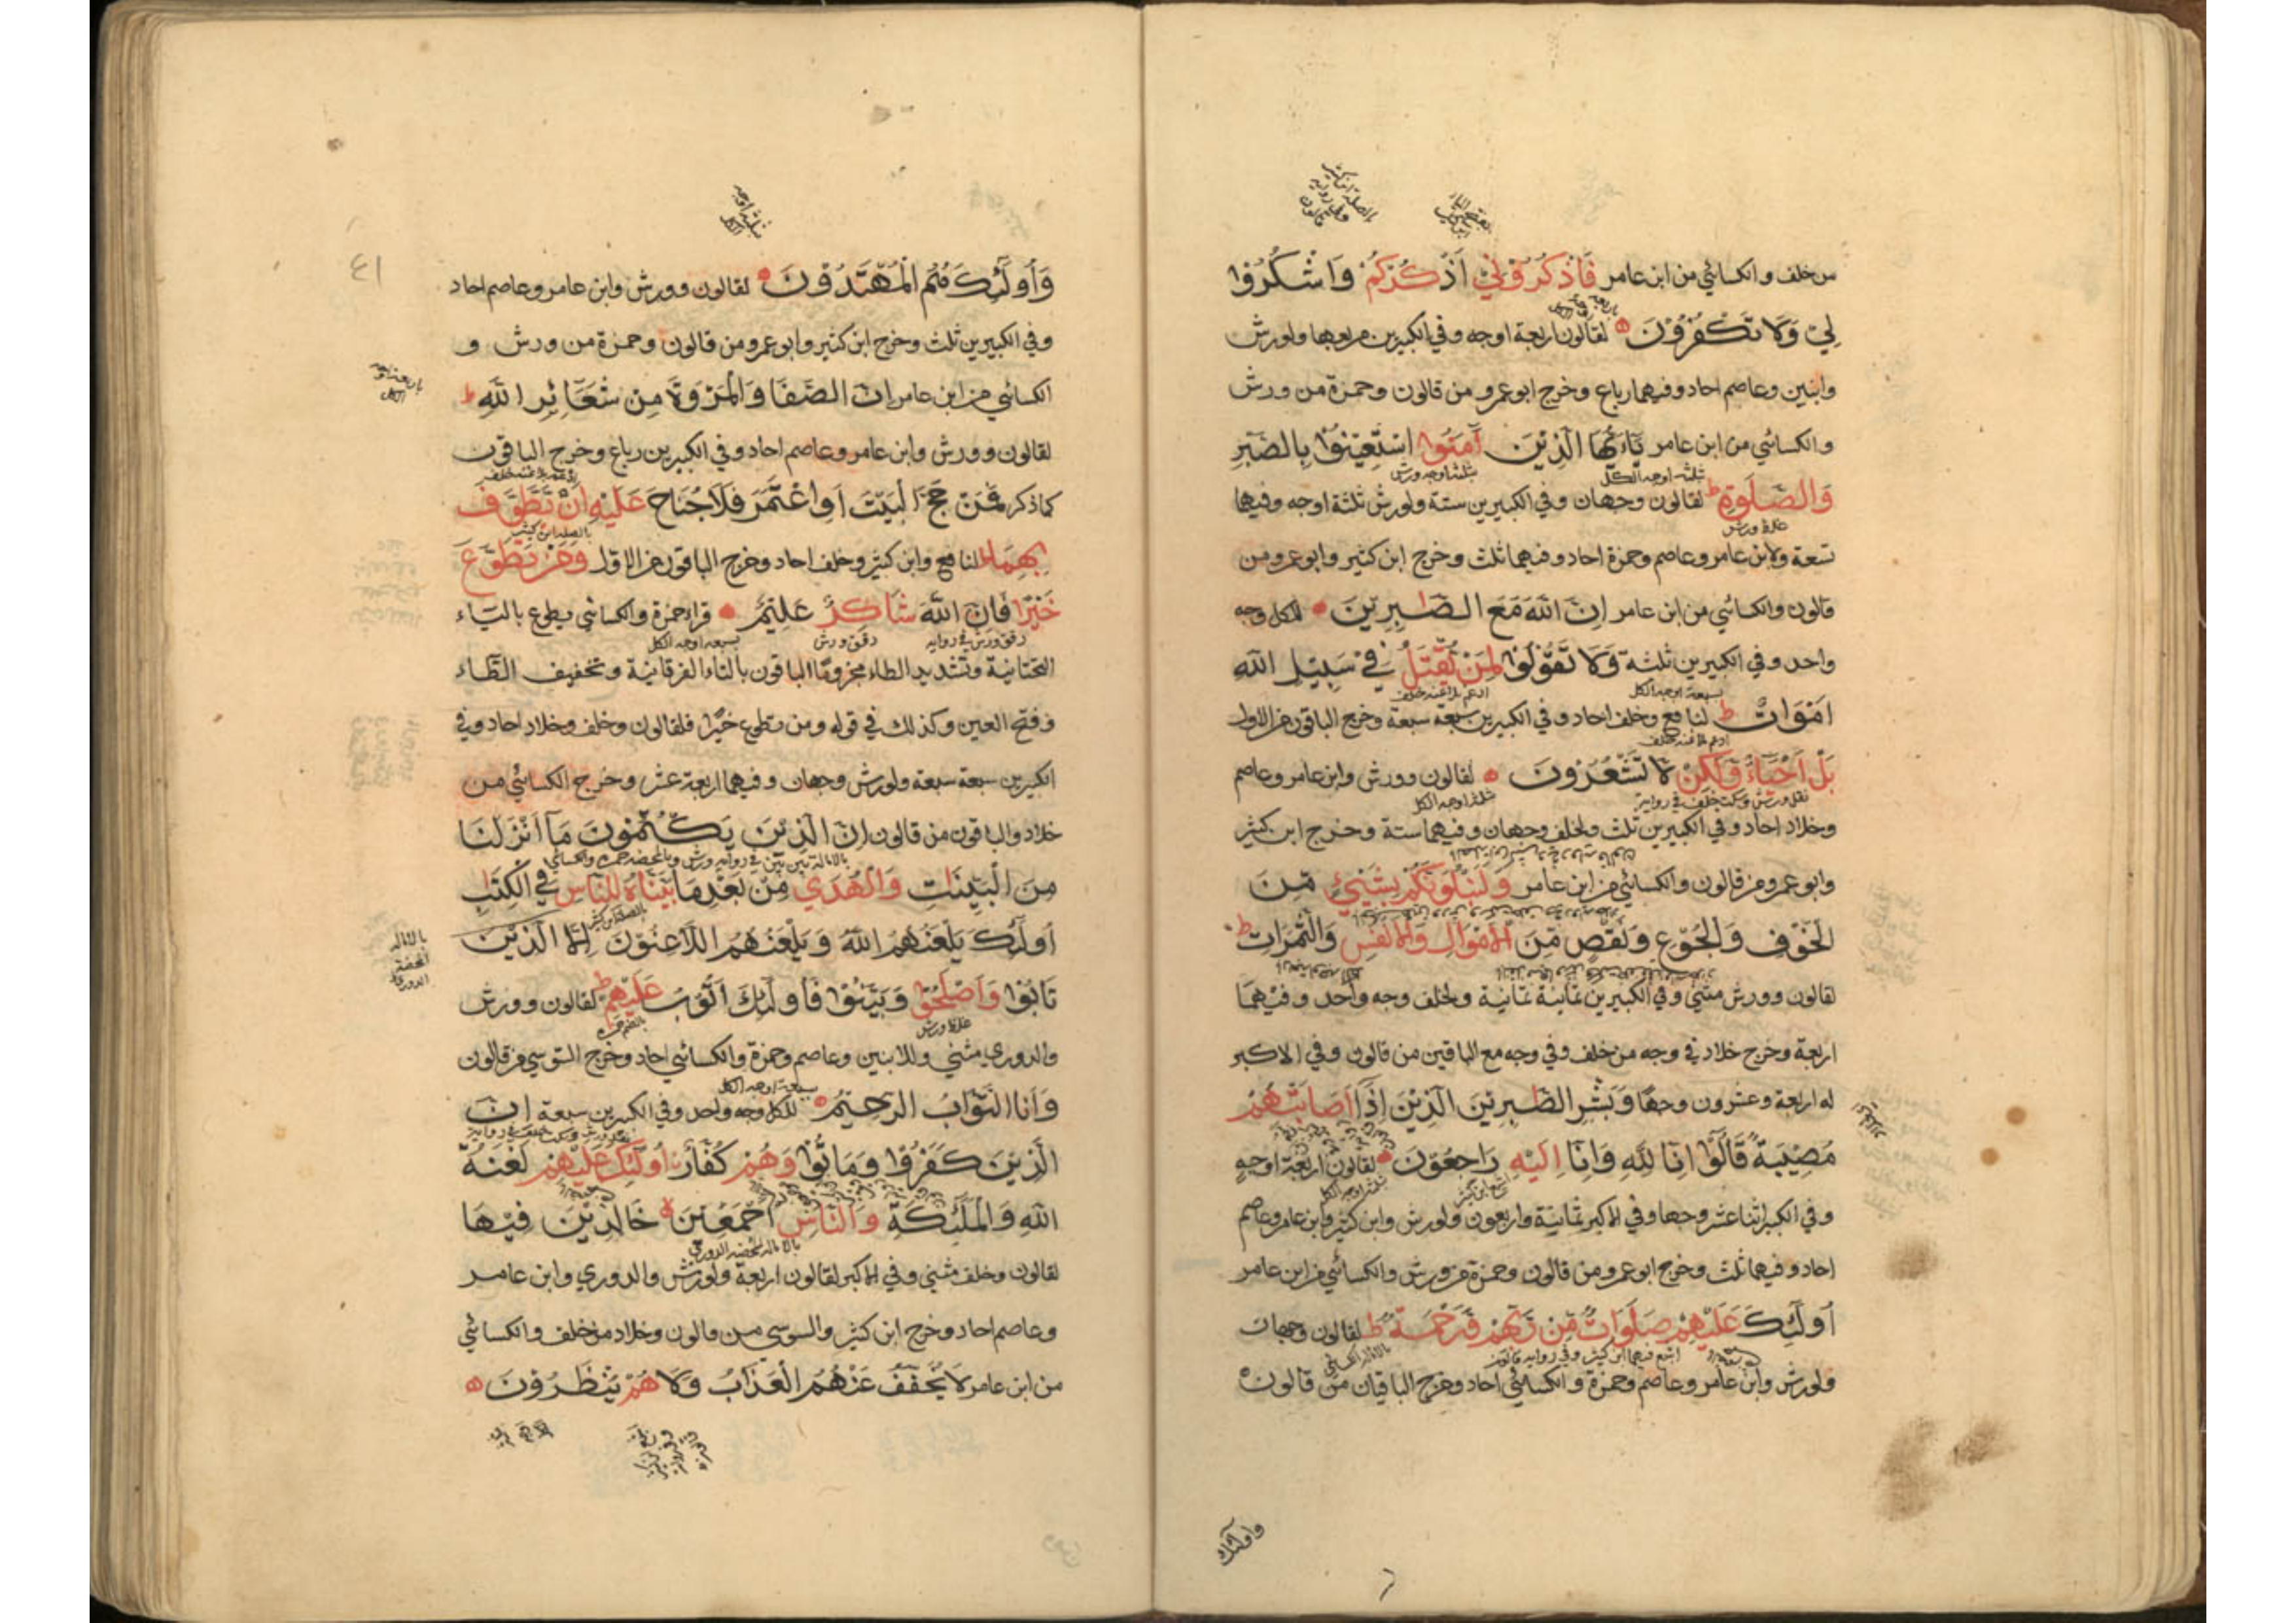 من خلف والكسائي من ابن عامر فَاذْكُرُوْنِيْ اَذْكُرْكُمْ وَاشْكُرُوْا
لِيْ وَلَا تَكْفُرُوْنَ لقالون اربعة اوجه وفي الكبيرين مربعها ولورش
وابنين وعاصم احاد وفيهما رباع وخرج ابوعمرو من قالون وحمزة من ورش
والكسائي من ابن عامر يَاَيُّهَا الَّذِيْنَ آمَنُوا اسْتَعِيْنُوْا بِالصَّبْرِ
ثلثة اوجه الكل ثلثة اوجه ورش
وَالصَّلٰوةِ ط لقالون وجهان وفي الكبيرين ستة ولورش ثلثة اوجه وفيها
غلظ ورش
تسعة ولابن عامر وعاصم وحمزة احاد وفيهما ثلث وخرج ابن كثير وابوعمرو من
قالون والكسائي من ابن عامر اِنَّ اللّٰهَ مَعَ الصّٰبِرِيْنَ للكل وجه
واحد وفي الكبيرين ثلثة وَلَا تَقُوْلُوْا لِمَنْ يُّقْتَلُ فِيْ سَبِيْلِ اللّٰهِ
سبعة اوجه الكل ادغم بلاغنه خلف
اَمْوَاتٌ ط لنافع وخلف احاد وفي الكبيرين سبعة سبعة وخرج الباقون من الاول
ادغم بلاغنه خلف
بَلْ اَحْيَاءٌ وَّلٰكِنْ لَا تَشْعُرُوْنَ لقالون وورش وابن عامر وعاصم
نقل ورش وسكت خلف في رواية ثلثة اوجه الكل
وخلاد احاد وفي الكبيرين ثلث ولخلف وجهان وفيهما ستة وخرج ابن كثير
وابوعمرو من قالون والكسائي من ابن عامر وَلَنَبْلُوَنَّكُمْ بِشَيْئٍ مِّنَ
الْخَوْفِ وَالْجُوْعِ وَنَقْصٍ مِّنَ الْاَمْوَالِ وَالْاَنْفُسِ وَالثَّمَرَاتِ ط
لقالون وورش مثنى وفي الكبيرين ثمانية ثمانية ولخلف وجه واحد وفيهما
اربعة وخرج خلاد في وجه من خلف وفي وجه مع الباقين من قالون وفي الاكبر
له اربعة وعشرون وجها وَبَشِّرِ الصّٰبِرِيْنَ الَّذِيْنَ اِذَا اَصَابَتْهُمْ
مُصِيْبَةٌ قَالُوْا اِنَّا لِلّٰهِ وَاِنَّا اِلَيْهِ رَاجِعُوْنَ لقالون اربعة اوجه
اشبع ابن كثير ثلثة اوجه الكل
وفي الكبير اثنا عشر وجها وفي الاكبر ثمانية واربعون ولورش وابن كثير وابن عامر وعاصم
احاد وفيهما ثلث وخرج ابوعمرو من قالون وحمزة من ورش والكسائي من ابن عامر
اُولٰئِكَ عَلَيْهِمْ صَلَوَاتٌ مِّنْ رَّبِّهِمْ وَرَحْمَةٌ ط لقالون وجهان
اشبع فيهما ابن كثير وفي رواية قالون
ولورش وابن عامر وعاصم وحمزة والكسائي احاد وخرج الباقيان من قالون
واولئك
٤١
وَاُولٰئِكَ هُمُ الْمُهْتَدُوْنَ لقالون وورش وابن عامر وعاصم احاد
وفي الكبيرين ثلث وخرج ابن كثير وابوعمرو من قالون وحمزة من ورش و
باربعة اوجه الكل
الكسائي من ابن عامر اِنَّ الصَّفَا وَالْمَرْوَةَ مِنْ شَعَائِرِ اللّٰهِ ط
لقالون وورش وابن عامر وعاصم احاد وفي الكبيرين رباع وخرج الباقون
ادغم بلاغنه خلف
كما ذكر فَمَنْ حَجَّ الْبَيْتَ اَوِ اعْتَمَرَ فَلَا جُنَاحَ عَلَيْهِ اَنْ يَّطَّوَّفَ
بالصلة ابن كثير
بِهِمَا ط لنافع وابن كثير وخلف احاد وخرج الباقون من الاول وَمَنْ تَطَوَّعَ
خَيْرًا فَاِنَّ اللّٰهَ شَاكِرٌ عَلِيْمٌ قراء حمزة والكسائي يطوع بالياء
رقق ورش في رواية رقق ورش سبعة اوجه الكل
التحتانية وتشديد الطاء مجزوما الباقون بالتاء الفرقانية وتخفيف الطاء
وفتح العين وكذلك في قوله ومن تطوع خيرا فلقالون وخلف وخلاد احاد وفي
الكبيرين سبعة سبعة ولورش وجهان وفيهما اربعة عشر وخرج الكسائي من
خلاد والباقون من قالون اِنَّ الَّذِيْنَ يَكْتُمُوْنَ مَا اَنْزَلْنَا
بالامالة بين بين في رواية ورش وبالمحضة حمزة والكسائي
مِنَ الْبَيِّنٰتِ وَالْهُدٰى مِنْ بَعْدِ مَا بَيَّنَّاهُ لِلنَّاسِ فِي الْكِتٰبِ
بالصلة ابن كثير
اُولٰئِكَ يَلْعَنُهُمُ اللّٰهُ وَيَلْعَنُهُمُ اللَّاعِنُوْنَ اِلَّا الَّذِيْنَ
بالامالة المحضة الدوري
تَابُوْا وَاَصْلَحُوْا وَبَيَّنُوْا فَاُولٰئِكَ اَتُوْبُ عَلَيْهِمْ ط لقالون وورش
غلظ ورش بالضم حمزة
والدوري مثنى وللابنين وعاصم وحمزة والكسائي احاد وخرج السوسي من قالون
سبعة اوجه الكل
وَاَنَا التَّوَّابُ الرَّحِيْمُ للكل وجه واحد وفي الكبيرين سبعة اِنَّ
نقل ورش وسكت خلف في رواية
الَّذِيْنَ كَفَرُوْا وَمَاتُوْا وَهُمْ كُفَّارٌ اُولٰئِكَ عَلَيْهِمْ لَعْنَةُ
اللّٰهِ وَالْمَلٰئِكَةِ وَالنَّاسِ اَجْمَعِيْنَ خَالِدِيْنَ فِيْهَا
بالامالة المحضة الدوري
لقالون وخلف مثنى وفي الاكبر لقالون اربعة ولورش والدوري وابن عامر
وعاصم احاد وخرج ابن كثير والسوسي من قالون وخلاد من خلف والكسائي
من ابن عامر لَا يُخَفَّفُ عَنْهُمُ الْعَذَابُ وَلَا هُمْ يُنْظَرُوْنَ